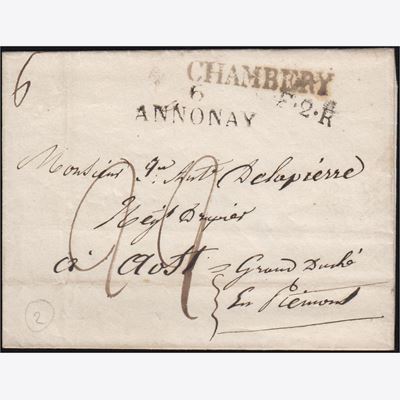 6
CHAMBERY
6
ANNONAY
F.2.R
Monsieur Jn. Ante Delapierre
Négt Drapier
à Aost
Grand Duché
En Piémont
22
2